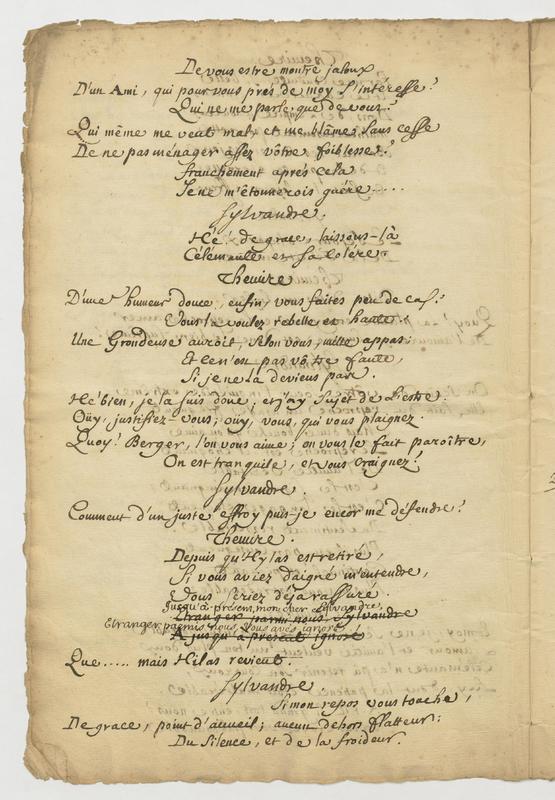 De vous estre montré jaloux
D'un Ami, qui pour vous prés de moy s'intéresse?
Qui ne me parle que de vous?
Qui même me veut mal, et me blâme sans cesse
De ne pas ménager assez vôtre foiblesse?
franchement aprés cela
Je ne m'étonnerois guére.....
Sylvandre.
Hé! de grace, laissons-là
Célémante et sa colére.
Themire
D'une humeur douce, enfin, vous faites peu de cas?
Vous la voulez rebelle et haute.
Une Grondeuse auroit, selon vous, mille appas:
Et ce n'est pas vôtre faute,
Si je ne la deviens pas.
Hé bien, je la suis donc, et j'ay sujet de l'estre.
Oüy, justifiez-vous; oüy, vous, qui vous plaignez.
Quoy! Berger, l'on vous aime; on vous le fait paroître,
On est tranquile, et vous craignez?
Sylvandre.
Comment d'un juste effroy puis-je encor me défendre?
Themire.
Depuis qu'Hylas est retiré,
Si vous aviez daigné m'entendre,
Vous seriez déja rassuré.
Jusqu'à présent, mon cher Sylvandre,
Etranger parmi nous, Sylvandre
Etranger parmis nous, vous avés ignoré
A jusqu'à présent ignoré
Que..... mais Hilas revient.
Sylvandre
Si mon repos vous touche,
De grace, point d'accueil; aucun dehors flatteur:
Du silence, et de la froideur.